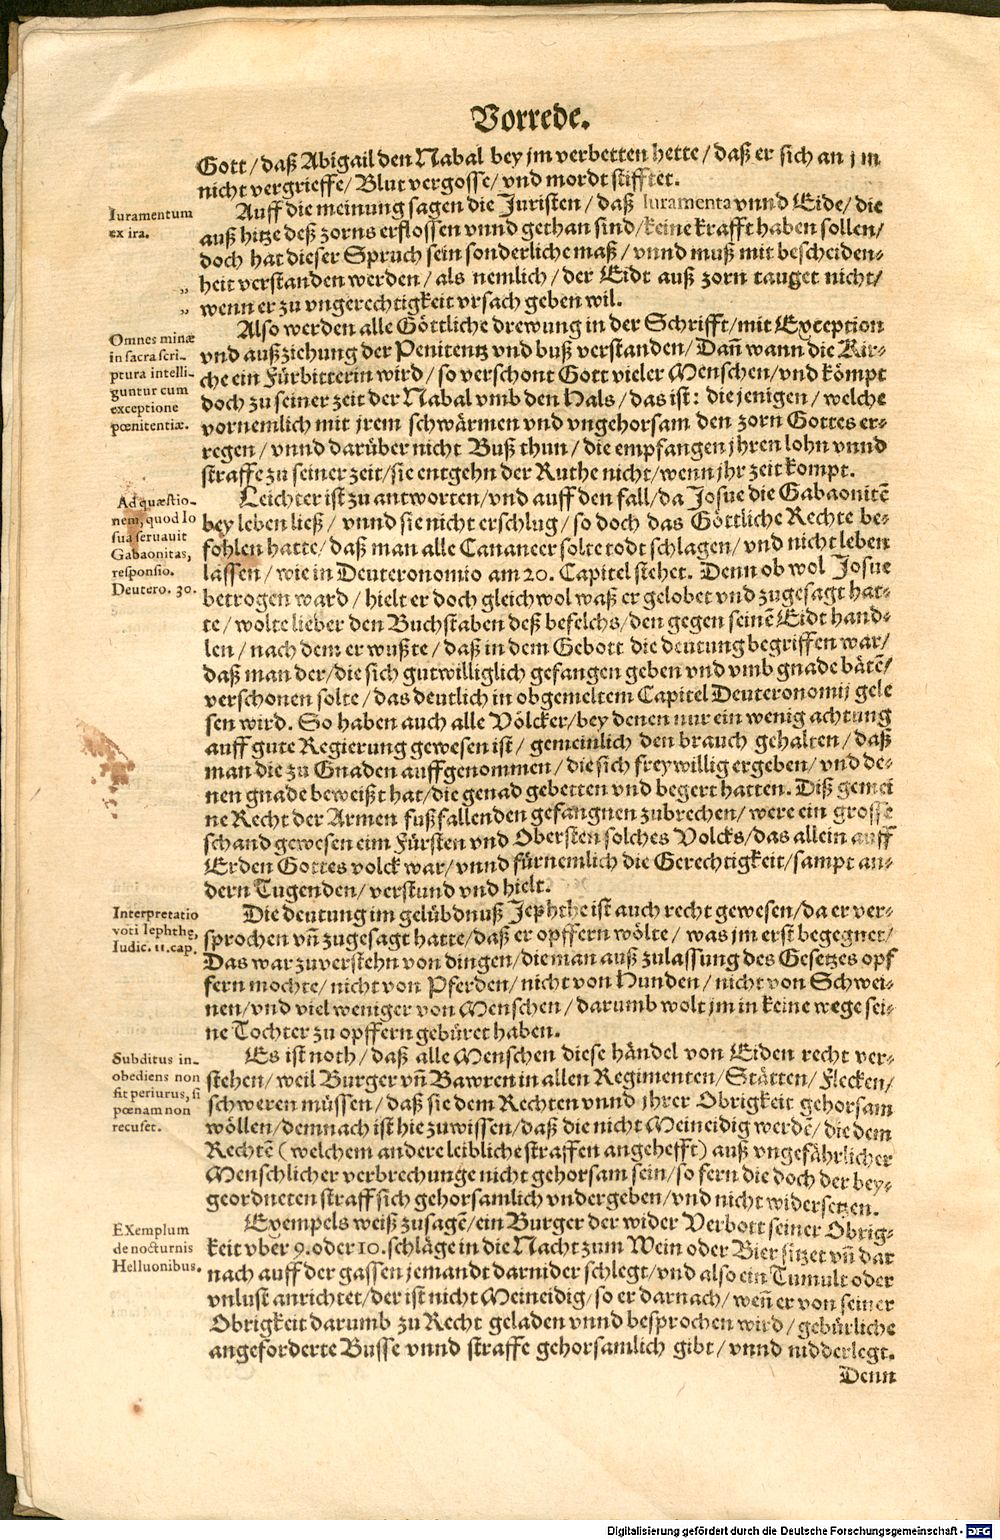 Vorrede.
Gott/ daß Abigail den Nabal bey jm verbetten hette/ daß er sich an jm
nicht vergrieffe/ Blut vergosse/ vnd mordt stifftet.
Iuramentum
ex ira.
Auff die meinung sagen die Juristen/ daß Iuramenta vnnd Eide/ die
auß hitze deß zorns erflossen vnnd gethan sind/ keine krafft haben sollen/
doch hat dieser Spruch sein sonderliche maß/ vnnd muß mit bescheiden⸗
„ heit verstanden werden/ als nemlich/ der Eidt auß zorn tauget nicht/
„ wenn er zu vngerechtigkeit vrsach geben wil.
Omnes minæ
in sacra scri-
ptura intelli-
guntur cum
exceptione
pœnitentiæ.
Also werden alle Göttliche drewung in der Schrifft/ mit Exception
vnd außziehung der Penitentz vnd buß verstanden/ Dañ wann die Kir⸗
che ein Fürbitterin wird/ so verschont Gott vieler Menschen/ vnd kömpt
doch zu seiner zeit der Nabal vmb den Hals/ das ist: die jenigen/ welche
vornemlich mit jrem schwärmen vnd vngehorsam den zorn Gottes er⸗
regen/ vnnd darüber nicht Buß thun/ die empfangen jhren lohn vnnd
straffe zu seiner zeit/ sie entgehn der Ruthe nicht/ wenn jhr zeit kompt.
Ad quæstio-
nem, quod Io
sua seruauit
Gabaonitas,
responsio.
Deutero. 30.
Leichter ist zu antworten/ vnd auff den fall/ da Josue die Gabaonitē
bey leben ließ/ vnnd sie nicht erschlug/ so doch das Göttliche Rechte be⸗
fohlen hatte/ daß man alle Cananeer solte todt schlagen/ vnd nicht leben
lassen/ wie in Deuteronomio am 20. Capitel stehet. Denn ob wol Josue
betrogen ward/ hielt er doch gleichwol waß er gelobet vnd zugesagt hat⸗
te/ wolte lieber den Buchstaben deß befelchs/ den gegen seinē Eidt hand⸗
len/ nach dem er wußte/ daß in dem Gebott die deutung begriffen war/
daß man der/ die sich gutwilliglich gefangen geben vnd vmb gnade bätē/
verschonen solte/ das deutlich in obgemeltem Capitel Deuteronomij gele
sen wird. So haben auch alle Völcker/ bey denen nur ein wenig achtung
auff gute Regierung gewesen ist/ gemeinlich den brauch gehalten/ daß
man die zu Gnaden auffgenommen/ die sich freywillig ergeben/ vnd de⸗
nen gnade beweißt hat/ die genad gebetten vnd begert hatten. Diß gemei
ne Recht der Armen fußfallenden gefangnen zubrechen/ were ein grosse
schand gewesen eim Fürsten vnd Obersten solches Volcks/ das allein auff
Erden Gottes volck war/ vnnd fürnemlich die Gerechtigkeit/ sampt an⸗
dern Tugenden/ verstund vnd hielt.
Interpretatio
voti Iephthe,
Iudic. 11. cap.
Die deutung im gelübdnuß Jephthe ist auch recht gewesen/ da er ver⸗
sprochen vñ zugesagt hatte/ daß er opffern wölte/ was jm erst begegnet/
Das war zuverstehn von dingen/ die man auß zulassung des Gesetzes opf
fern mochte/ nicht von Pferden/ nicht von Hunden/ nicht von Schwei⸗
nen/ vnd viel weniger von Menschen/ darumb wolt jm in keine wege sei⸗
ne Tochter zu opffern gebüret haben.
Subditus in-
obediens non
fit periurus, si
pœnam non
recuset.
Es ist noth/ daß alle Menschen diese händel von Eiden recht ver⸗
stehen/ weil Burger vñ Bawren in allen Regimenten/ Stätten/ Flecken/
schweren müssen/ daß sie dem Rechten vnnd jhrer Obrigkeit gehorsam
wöllen/ demnach ist hie zuwissen/ daß die nicht Meineidig werdē/ die dem
Rechtē (welchem andere leibliche straffen angehefft) auß vngefährlicher
Menschlicher verbrechunge nicht gehorsam sein/ so fern die doch der bey⸗
geordneten straff sich gehorsamlich vndergeben/ vnd nicht widersetzen.
EXemplum
de nocturnis
Helluonibus.
Exempels weiß zusagē/ ein Burger der wider Verbott seiner Obrig⸗
keit vber 9. oder 10. schläge in die Nacht zum Wein oder Bier sitzet vñ dar
nach auff der gassen jemandt darnider schlegt/ vnd also ein Tumult oder
vnlust anrichtet/ der ist nicht Meineidig/ so er darnach/ weñ er von seiner
Obrigkeit darumb zu Recht geladen vnnd besprochen wird/ gebürliche
angeforderte Busse vnnd straffe gehorsamlich gibt/ vnnd nidderlegt.
Denn
Digitalisierung gefördert durch die Deutsche Forschungsgemeinschaft - DFG